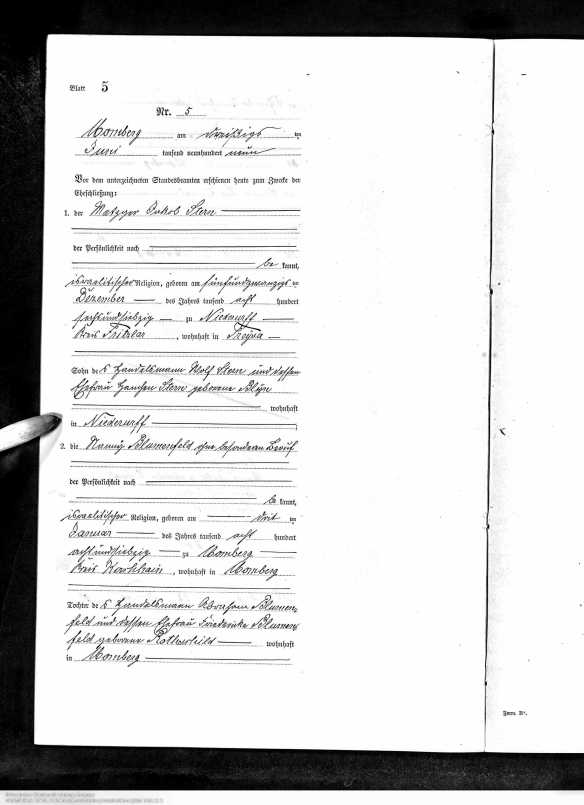 Blatt 5
Nr. 5
Momberg am dreißigs ten
Juni tausend neunhundert neun
Vor dem unterzeichneten Standesbeamten erschienen heute zum Zwecke der
Eheschließung:
1. der Metzger Jakob Stern
der Persönlichkeit nach
be kannt,
israelitischer Religion, geboren am fünfundzwanzigs ten
Dezember des Jahres tausend acht hundert
sechsundsiebzig zu Niederurff
Kreis Fritzlar, wohnhaft in Treysa
Sohn des Handelsmann Wolf Stern und dessen
Ehefrau Hannchen Stern geborene
wohnhaft
in Niederurff
2. die Blumenfeld ohne besonderen Beruf
der Persönlichkeit nach
be kannt,
israelitischer Religion, geboren am drit ten
Januar des Jahres tausend acht hundert
achtundsiebzig zu Momberg
Kreis Kirchhain, wohnhaft in Momberg
Tochter des Handelsmann Abraham Blumen-
feld und dessen Ehefrau Friederike Blumen-
feld geborene Rothschild wohnhaft
in Momberg
Form. B¹.